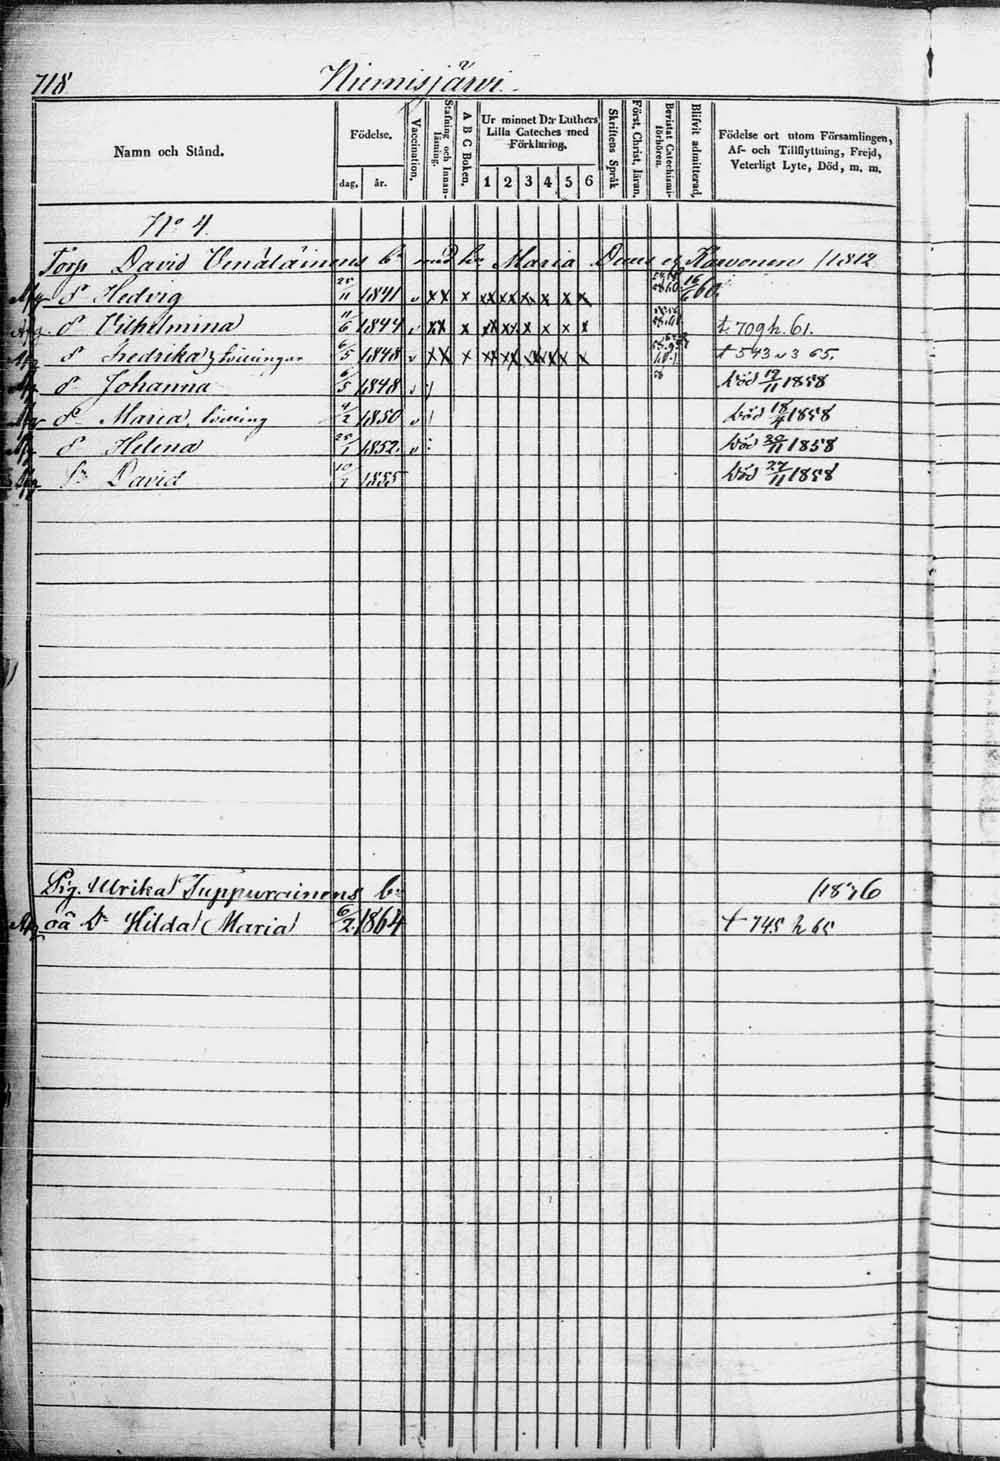 718 Niemisjärvi.
Namn och Stånd. Födelse. dag. år. Vaccination. Stafning och Innan-läsning. A B C Boken. Ur minnet D:r Luthers Lilla Cateches med Förklaring. 1 2 3 4 5 6 Skriftens Språk Först. Christ. läran. Bevistat Catechismi-förhören. Blifvit admitterad. Födelse ort utom Församlingen, Af- och Tillflyttning, Frejd, Veterligt Lyte, Död, m. m.
No 4
Torp David Venäläinens bn med hu Maria Kowonen /1812
Hedvig 11 1841 v x x x xx xx x x x x 16/6 60
Vilhelmina 11/6 1844 v x x x x x x x x t. 709 h. 61.
Fredrika } tvillingar 6/5 1848 v x x x x x x x x t 543 v 3 65.
Johanna 6/5 1848 v död 19/11 1858
Maria, tvilling 4/2 1850 v död 1858
Helena 1 1852. v död 20/11 1858
Sn David 10/1 1855 död 27/11 1858
Pig. Ulrika Tuppurainens bn /1836
oä Dr Hilda Maria 6/2 1864 t 745 h 65